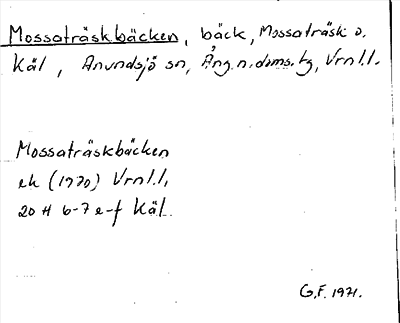 Mossaträskbäcken, bäck, Mossaträsk o.
Käl, Anundsjö sn, Ång.n.doms.tg, Vrnl.l.
Mossaträskbäcken
ek (1970) Vrnl.l,
20 H 6-7 e-f Käl.
G.F. 1971.